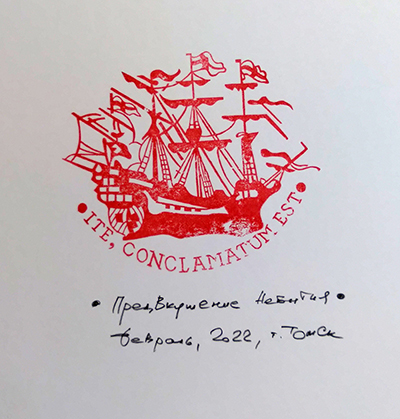 •ITE, CONCLAMATUM EST•
• Предвкушение Небытия •
февраль, 2022, г. Томск